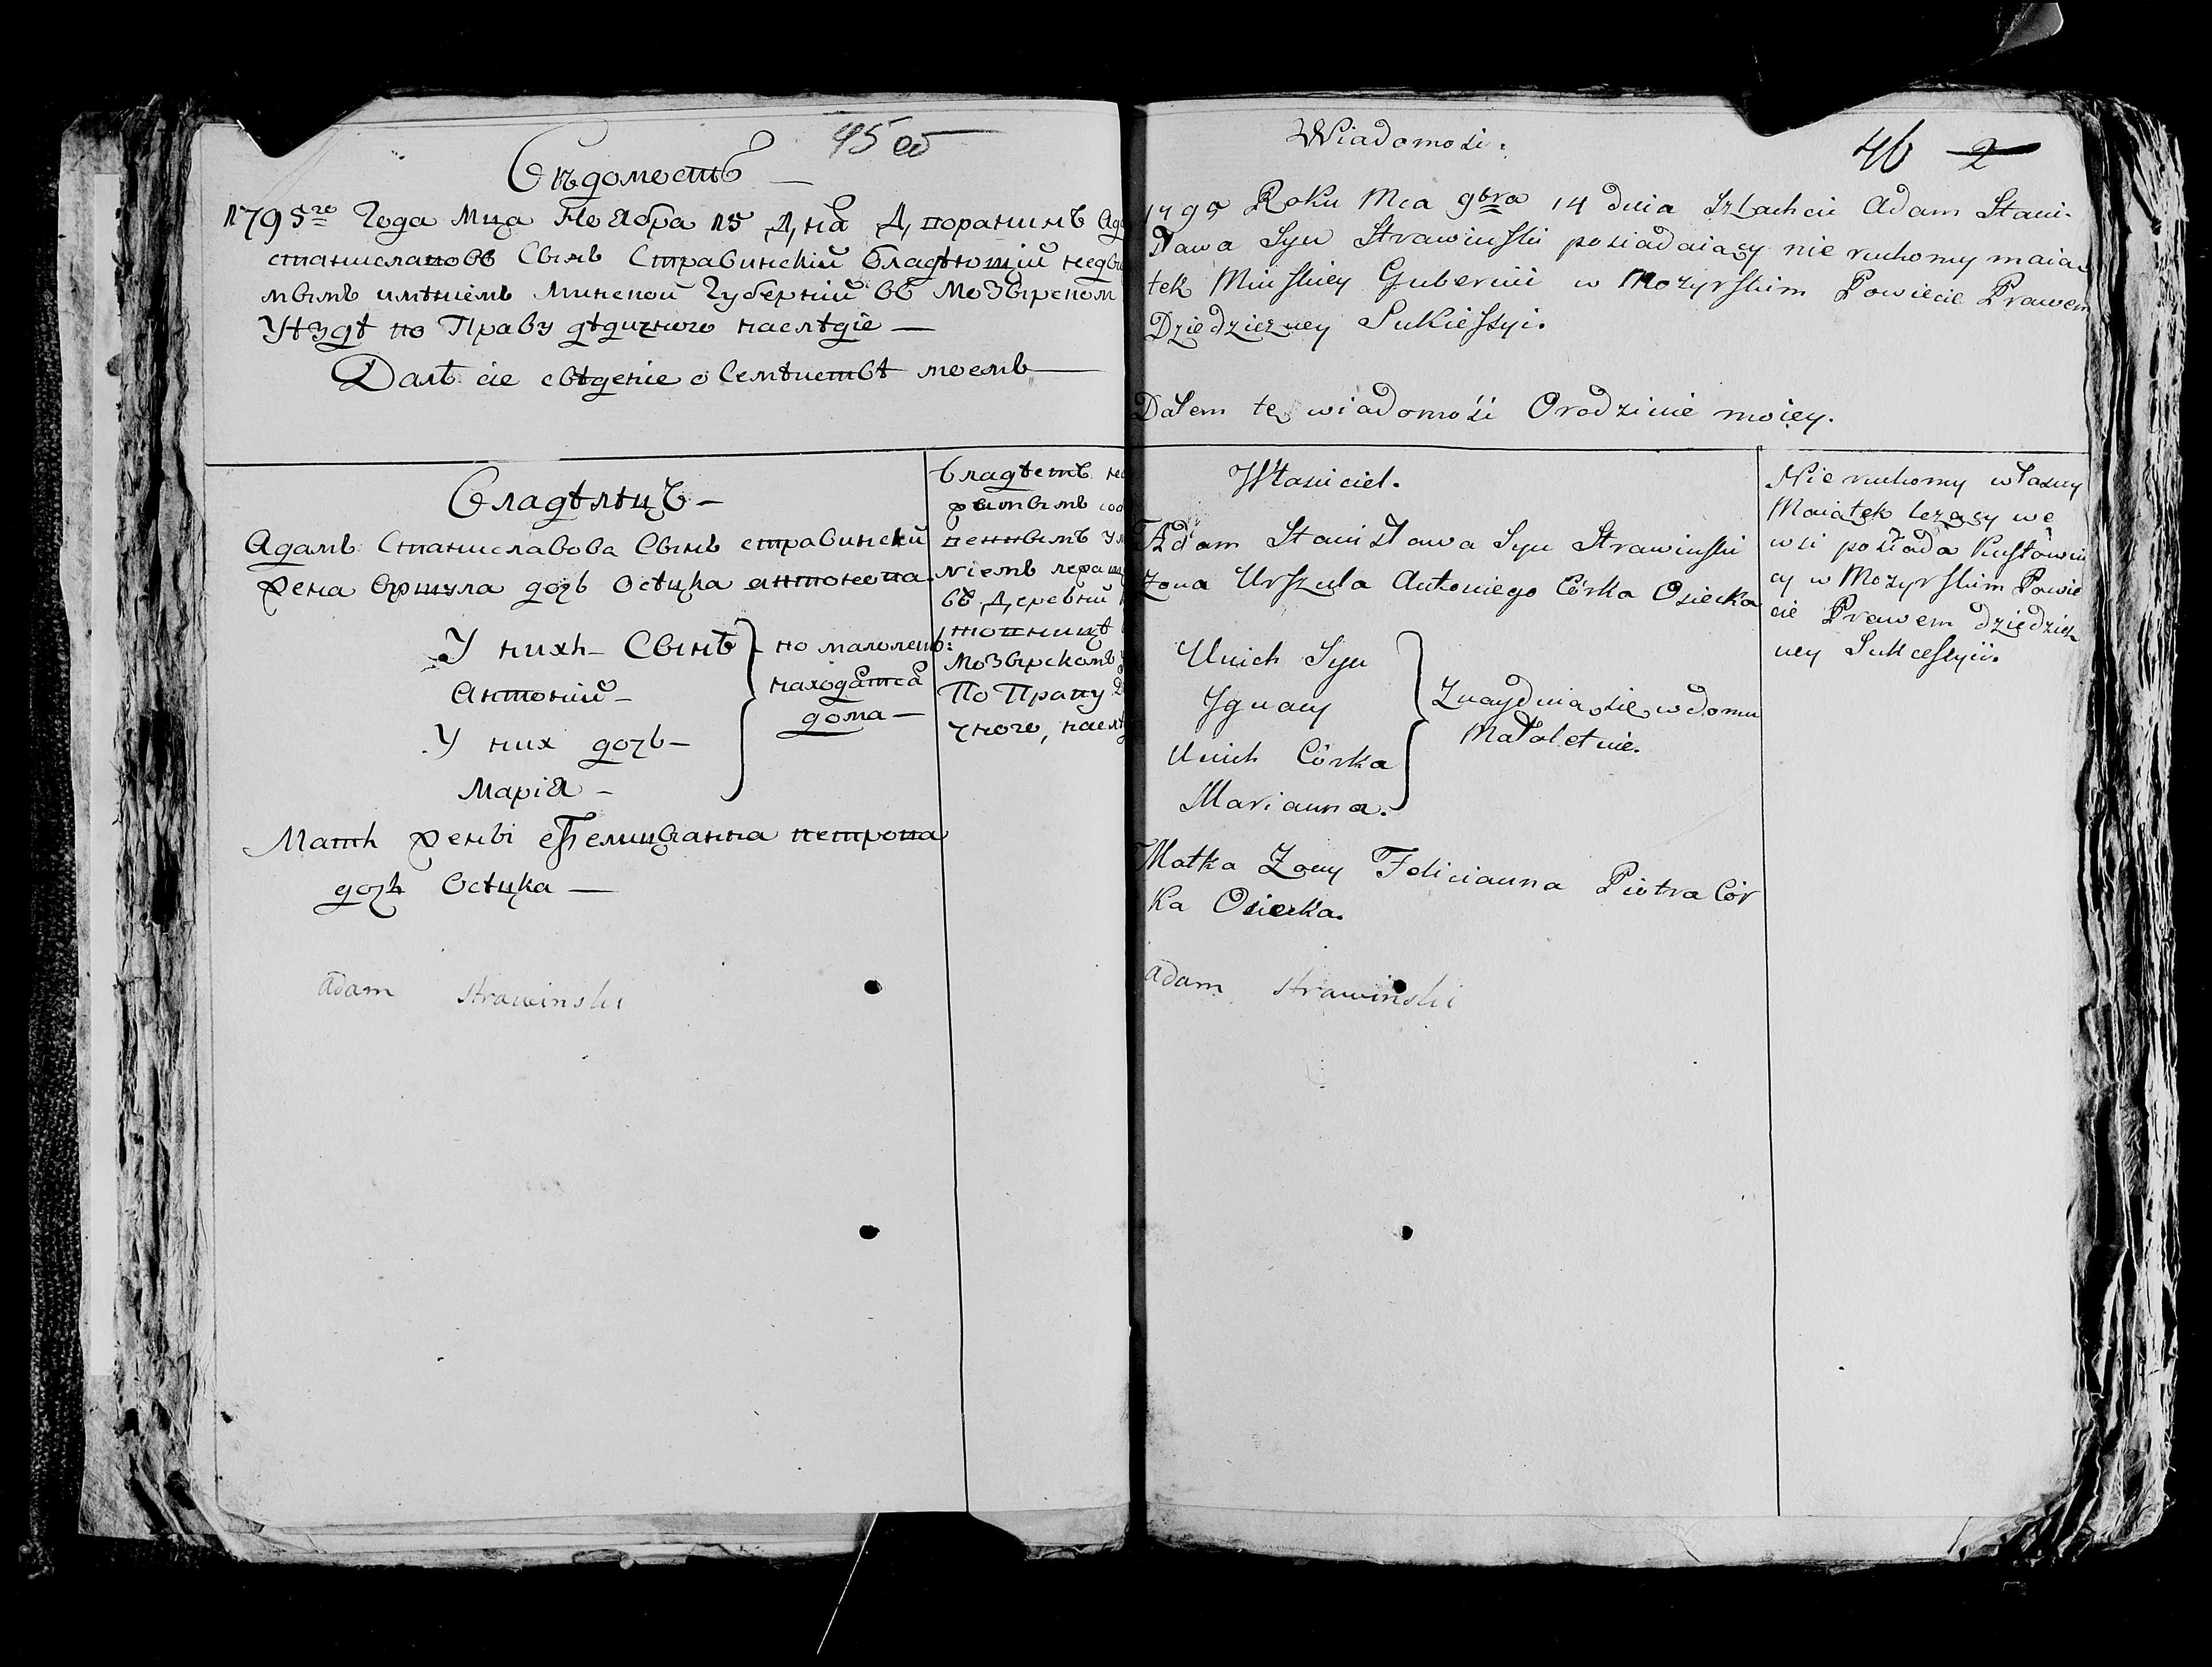 45 об
Вѣдомость —
1795го Года Мца Ноября 15 Дня Дворянинъ
Станиславовъ Сынъ Стравинскій Владѣющій
мымъ имѣніемъ Минской Губерніи въ Мозырском
Уѣздѣ по Праву дѣдичного наслѣдіе —
Далъ сіе свѣденіе о Семѣиствѣ моемъ
Владѣлецъ —
Адамъ Станиславова Сынъ Стравинскій
жена Уршула дочь Осѣцка Антонева
У нихъ — Сынъ
Антоній —
У них дочь —
Марія —
но малолетъ:
находятся
дома —
Мать жены Фелициянна Петрова
дочь Осѣцка —
Adam Strawinski
Владѣетъ
жимымъ
въ Деревни
Мозырскомъ
По Праву
чного,
Wiadomość.
46 2
1795 Roku Mca 9bra 14 dnia Szlachcic Adam Stani-
sława Syn Strawinski posiadaiący nie ruchomy maią
tek Minskiey Gubernii w Mozyrskim Powiecie Prawem
Dziedziczney Sukiessyi.
Dałem tę wiadomość O rodzinie moiey.
Właściciel.
Adam Stanisława Syn Strawinski
Zona Urszula Antoniego Córka Osiecka
Unich Syn
Ignacy
Unich Córka
Marianna.
Znayduia się w domu
Małoletnie.
Matka Zony Felicianna Piotra Cór
ka Osiecka.
Adam Strawinski
Nie ruchomy własny
Maiątek leżący we
wsi posiada
cy w Mozyrskim Powie
cie Prawem dziedzicz
ney Sukcessyii.